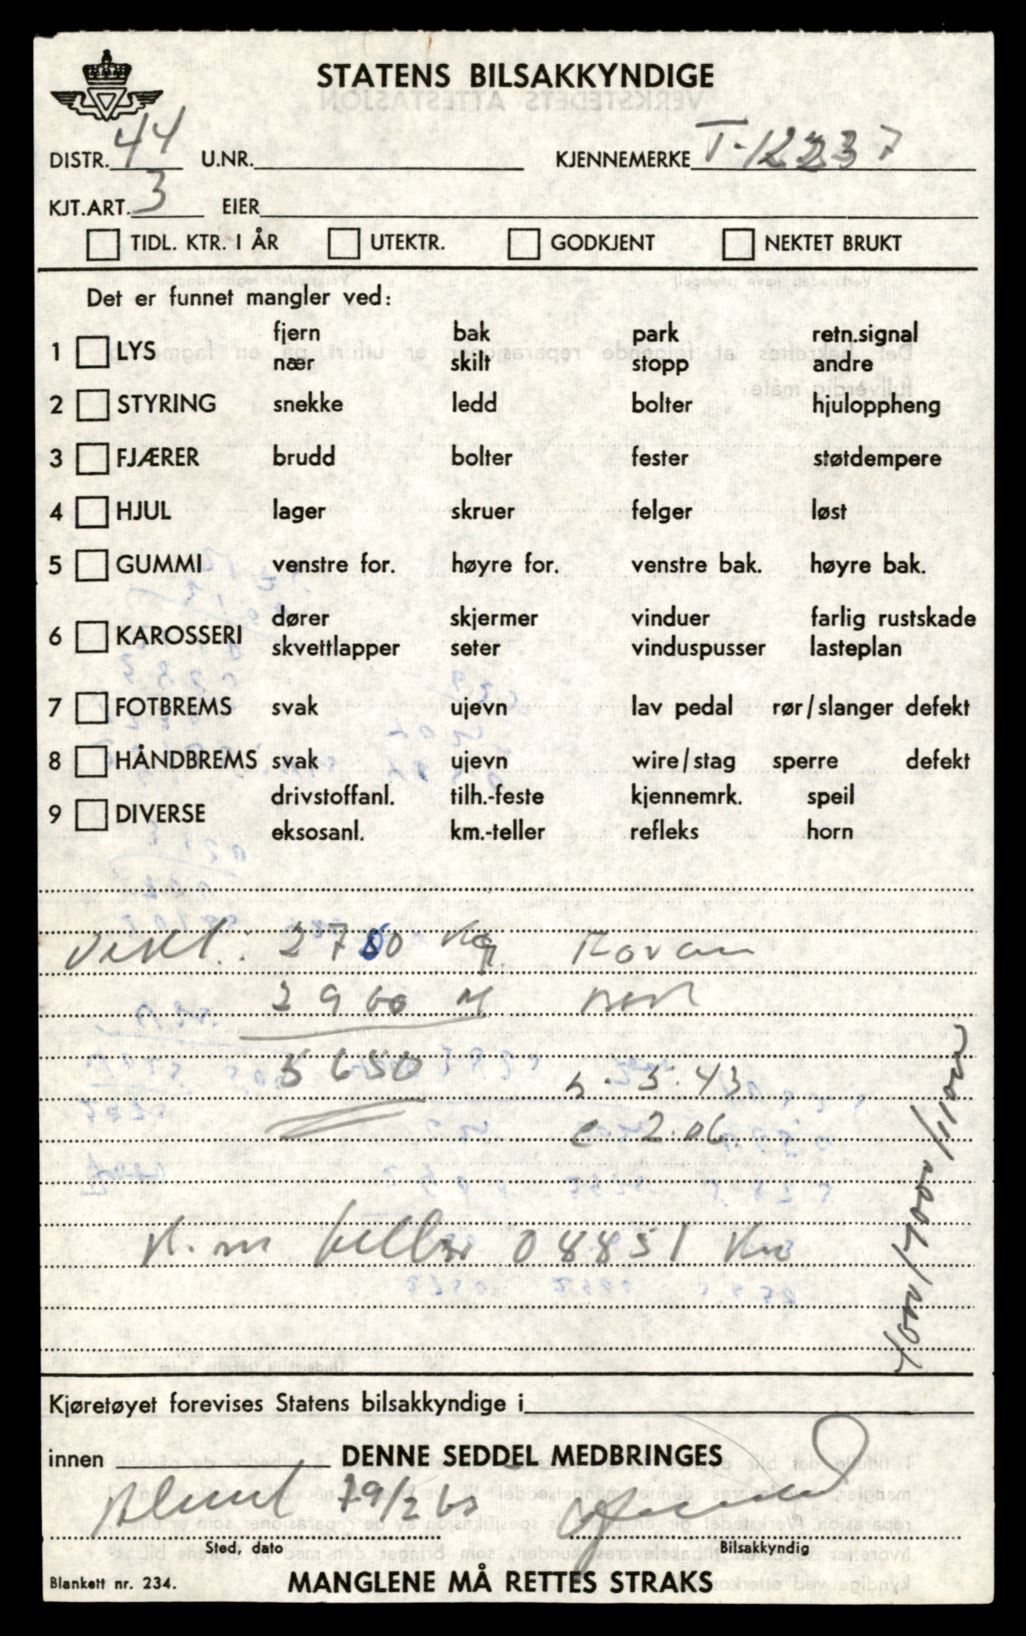 STATENS BILSAKKYNDIGE
DISTR. 44 U.NR. KJENNEMERKE T-12237
KJT.ART. 3 EIER
TIDL. KTR. I ÅR UTEKTR. GODKJENT NEKTET BRUKT
Det er funnet mangler ved:
1 LYS fjern bak park retn.signal
nær skilt stopp andre
2 STYRING snekke ledd bolter hjuloppheng
3 FJÆRER brudd bolter fester støtdempere
4 HJUL lager skruer felger løst
5 GUMMI venstre for. høyre for. venstre bak. høyre bak.
6 KAROSSERI dører skjermer vinduer farlig rustskade
skvettlapper seter vinduspusser lasteplan
7 FOTBREMS svak ujevn lav pedal rør/slanger defekt
8 HÅNDBREMS svak ujevn wire/stag sperre defekt
9 DIVERSE drivstoffanl. tilh.-feste kjennemrk. speil
eksosanl. km.-teller refleks horn
Vekt: Kg. Foran
2960
5650 5.43
2.06
K.m teller 08851 Km
Kjøretøyet forevises Statens bilsakkyndige i
innen DENNE SEDDEL MEDBRINGES
Sted, dato Bilsakkyndig
Blankett nr. 234. MANGLENE MÅ RETTES STRAKS